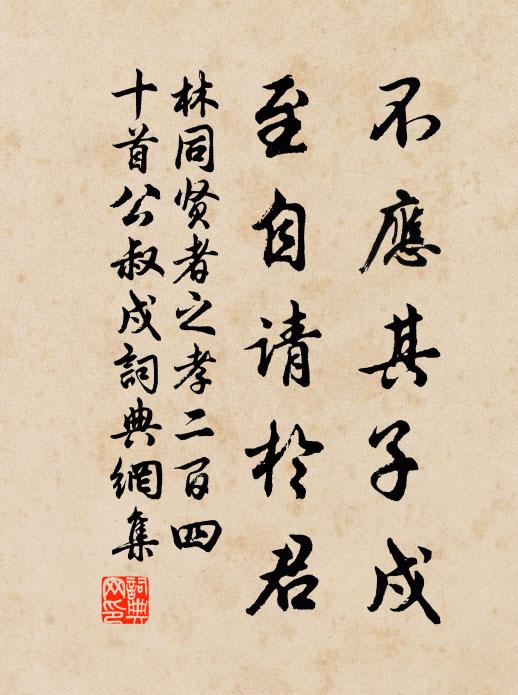 不應其子戍
至自请於君
林同贤者之孝二百四
十首公叔戍詞典網集
詞典
网印